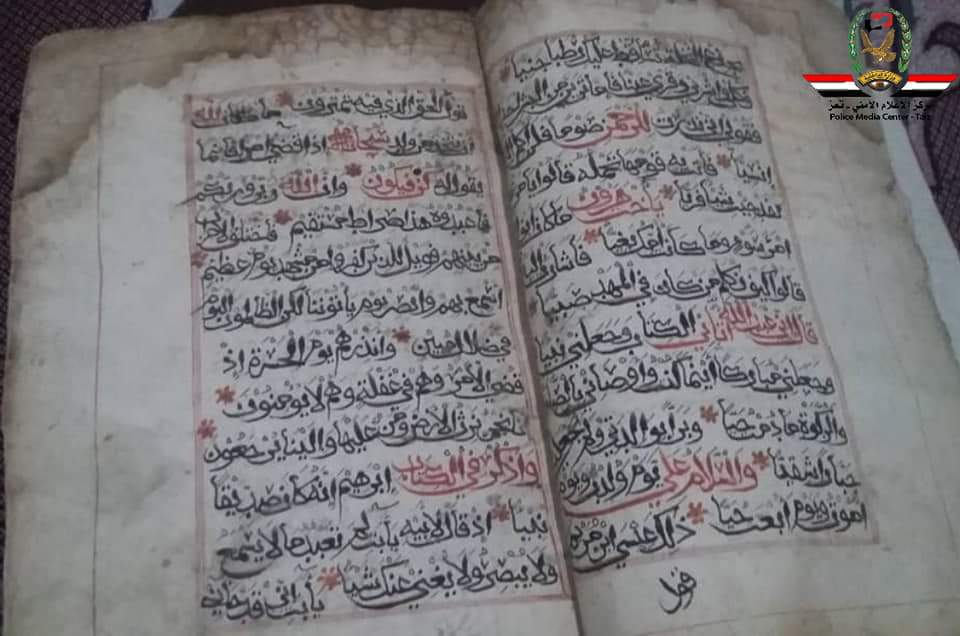 مركز الإعلام الأمني - تعز
Police Media Center - Taiz
النخلة تساقط عليك رطبا جنيا
فكلي واشربي وقري عينا فاما ترين من البشر
فقولي اني نذرت للرحمن صوما فلن اكلم
انسيا * فاتت به قومها تحمله قالوا يا مر
لقد جئت شيا فريا * يا اخت هرون ما كان ابو
امرء سوء وما كانت امك بغيا * فاشارت اليه
قالوا كيف نكلم من كان في المهد صبيا
قال اني عبد الله آتاني الكتاب وجعلني نبيا
وجعلني مباركا اينما كنت واوصاني بالص
والزكوة ما دمت حيا * وبرا بوالدتي ولم يجعل
جبارا شقيا * والسلام علي يوم ولدت ويوم
اموت ويوم ابعث حيا * ذلك عيسى ابن مريم
قول
قول الحق الذي فيه يمترون * ما كان لله
ان يتخذ من ولد سبحانه اذا قضى امرا فانما
يقول له كن فيكون * وان الله ربي وربكم
فاعبدوه هذا صراط مستقيم * فاختلف الاحزاب
من بينهم فويل للذين كفروا من مشهد يوم عظيم *
اسمع بهم وابصر يوم ياتوننا لكن الظالمون اليوم
في ضلال مبين * وانذرهم يوم الحسرة اذ
قضي الامر وهم في غفلة وهم لا يومنون *
انا نحن نرث الارض ومن عليها والينا يرجعون *
واذكر في الكتاب ابرهيم انه كان صديقا
نبيا * اذ قال لابيه يا ابت لم تعبد ما لا يسمع
ولا يبصر ولا يغني عنك شيا * يا ابت اني قد جاءني